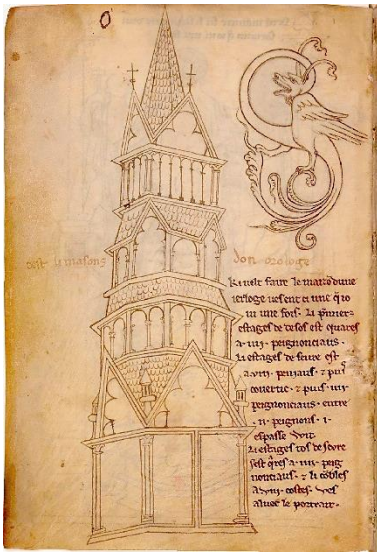 cest li masons don orologe
Ki velt faire le maizo dune
ierloge ves ent ci une q io
vi une fois. li p̃miers
estages de desos est quares
a .iiii. peignonciaus.
li estages de seure est
a .viii. peniaus. ⁊ puis
covertic. ⁊ puis .iiii.
peignonciaus. entre
.ii. peignons .i.
espasse wit
li estages tos de seure
sest q̃res a .iiii. peig
nonciaus. ⁊ li cobles
a .viii. costes. ves
aluec le portrait.